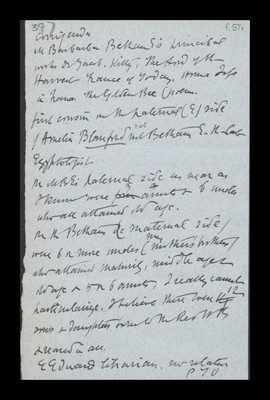 39
f. 57
Corrigenda
M Barbara Betham E's principal
works de Jacob. Kitty, The Lord of the
Harvest France of Today, Home Life
in France. The Golden Bee (poem.
first cousin on the maternal (E) side
of Amelia Blanford not Betham E. the late
Egyptologist
On MBE's paternal side as near as
I know were aunts & 6 uncles
who all attained old age.
On the Betham ie maternal side
were 6 or more uncles (mother's brothers)
who attained maturity, middle age &
old age & 5 or 6 aunts, I really cannot
particularize. I believe there were 12
sons & daughters born to the Rev W B
& reared in all.
E Edward librarian, no relation
P T O